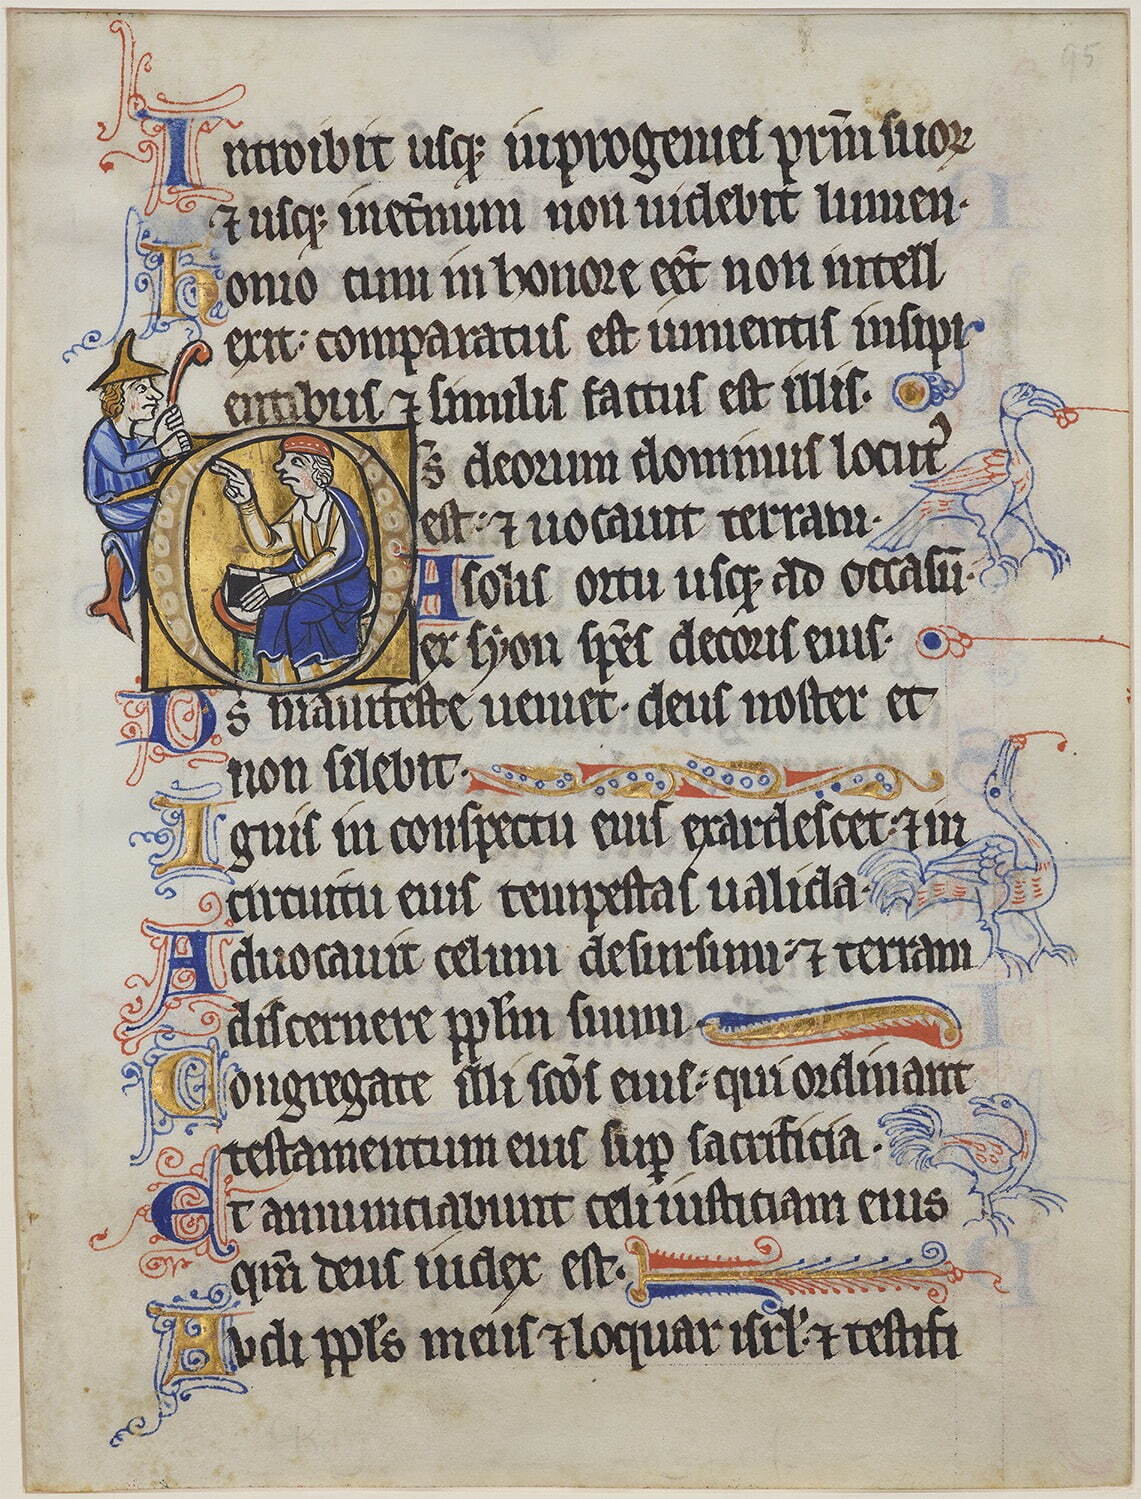 95
Introibit usq; in progenies prı̄m suoꝝ
⁊ usq; inet̄num non uidebit lumen·
homo cum in honore eēt non intell
exit: comparatus est iumentis insipi
entibus ⁊ similis factus est illis.
Ds̄ deorum dominus locutꝰ
est: ⁊ uocauit terram·
A solis ortu usq; ad occasū·
ex syon sp̄es decoris eius·
Ds̄ manifeste ueniet· deus noster et
non silebit·
Ignis in conspectu eius exardescet: ⁊ in
circuitu eius tempestas ualida·
Aduocauit celum desursum: ⁊ terram
discernere ppl̄m suum·
Congregate illi scōs eius: qui ordinant
testamentum eius sup̄ sacrificia·
Et annunciabunt celi iusticiam eius
qm̄ deus iudex est·
Audi ppl̄s meus ⁊ loquar isrl̄· ⁊ testifi